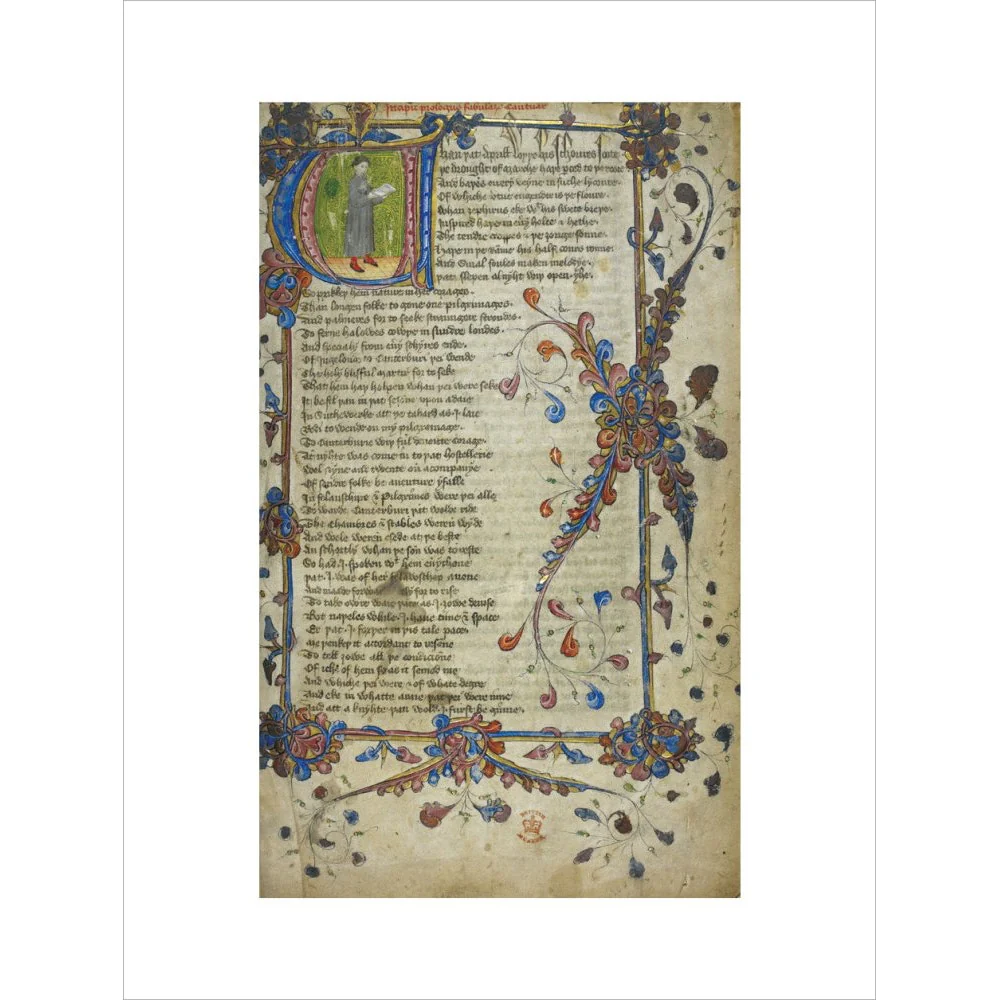 Incipit prologus fabularum Cantuar
Whan þat Aprill wyþ his schoures soote
þe drought of Marche haþe perced to þe roote
And baþed every veyne in suche lycoure
Of whiche vertue engendred is þe floure
Whan zephirus eke wt his swete breþe
Inspired haþe in every holte & heþe
The tendre croppes & þe ȝonge sonne
Haþe in þe Ramme his half cours ronne
And smal foules maken melodye
þat slepen al nyht wiþ open yhe
So prikeþ hem nature in her corages
Than longen folke to gone one pilgrimages
And palmeres for to seeke straungere strondes
To ferne halowes cowþe in sundre londes
And specialy from every schyres ende
Of Ingelond to Canterburi þei wende
The holy blisful martir for to seke
That hem haþ holpen whan þei were seke
It befil þan in þat seson upon a daie
In Suthewerke att þe tabard as I laie
Redi to wende on my pilgrimage
To Canterburie wiþ ful devoute corage
At nyhte was come in to þat hostellerie
Wel nyne and twente on a companye
Of sondre folke be aventure yfalle
In felauschipe & Pilgrimes were þei alle
To warde Canterburi þat wolde ride
The chambres & stables weren wyde
And wele weren esede att þe beste
An schortly whan þe son was to reste
So had I spoken wt hem everychone
þat I was of her felawschep anone
And made forward for to rise
To take owre waie þere as I ȝowe devise
Bot naþeles while I have time & space
Er þat I forþer in þis tale pace
Me þenkeþ it accordant to resone
To tell ȝowe all þe condicione
Of iche of hem so as it semed me
And whiche þei were & of whate degre
And eke in whatte araie þat þei were inne
And att a knyhte þan wold I first beginne
BRITISH
MUSEUM